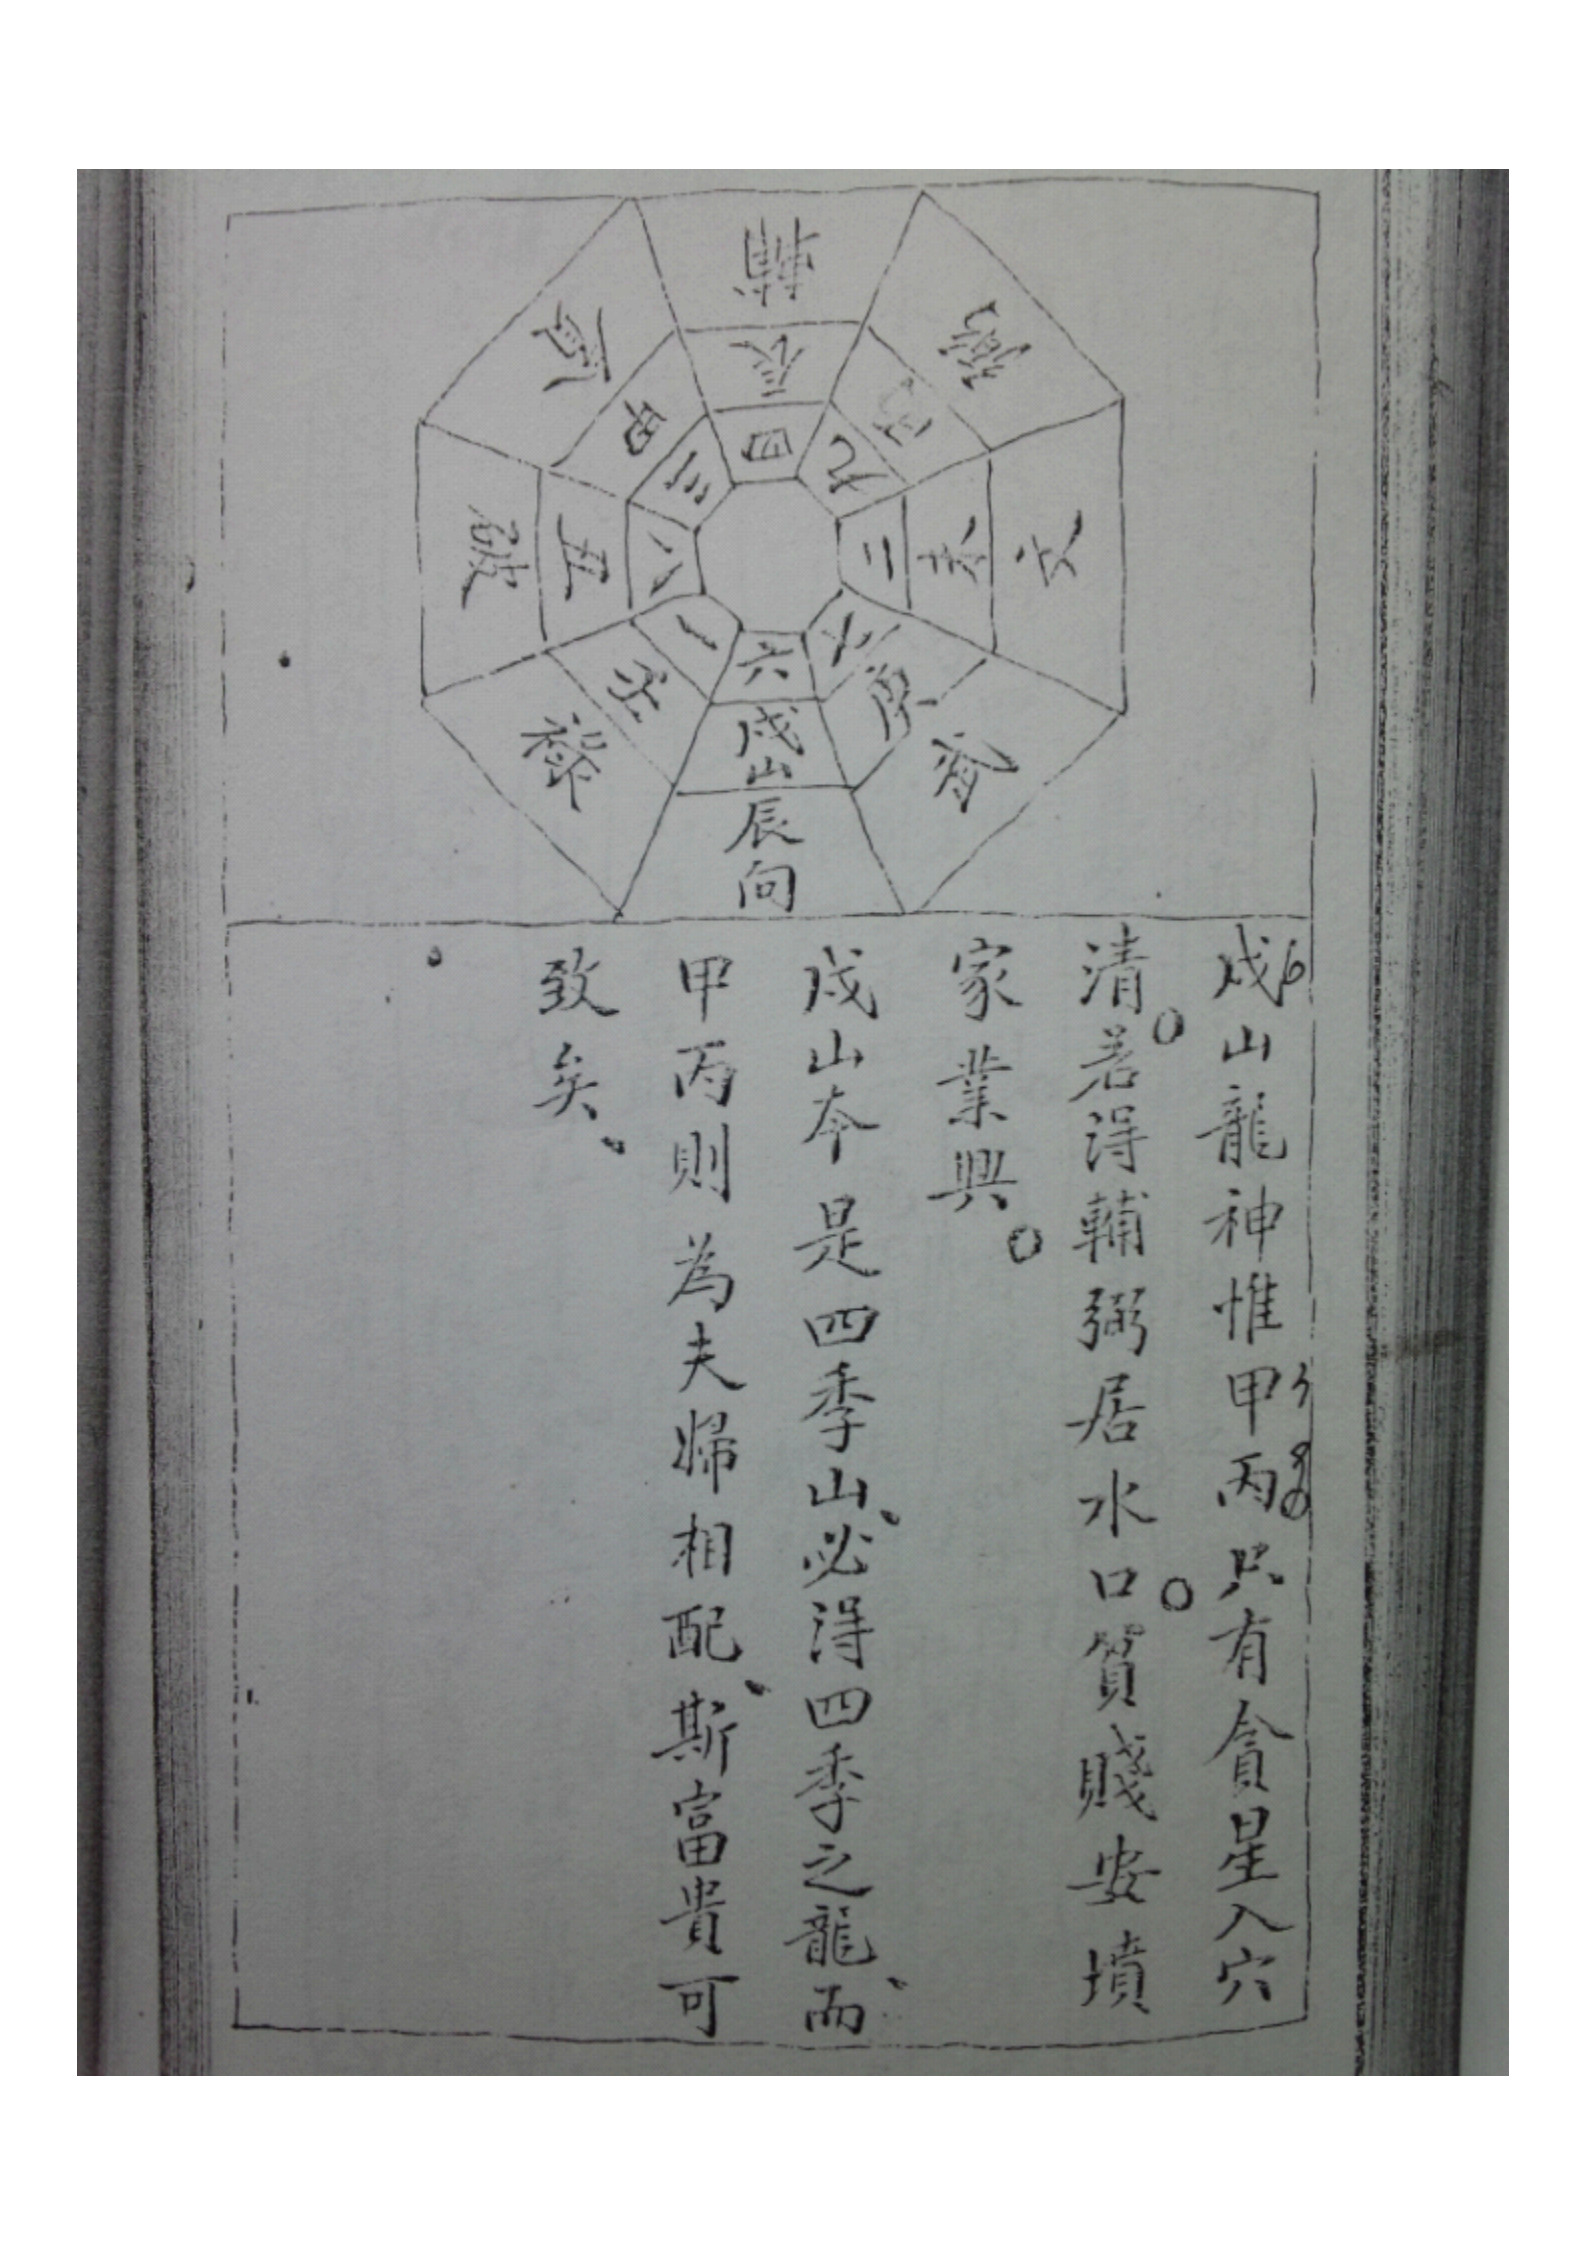 輔
辰
四
甲
三
丙
九
破
丑
八
二
未
文
祿
壬
一
六
庚
戌山
辰向
戌山龍神惟甲丙只有貪星入穴
清若得輔弼居水口貧賤安墳
家業興
戌山本是四季山、必得四季之龍、而
甲丙則為夫婦相配、斯富貴可
致矣、